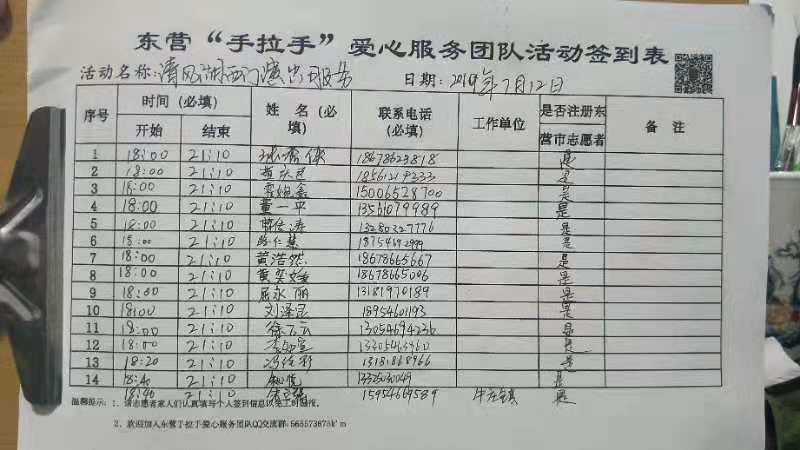 东营“手拉手”爱心服务团队活动签到表
活动名称：清风湖西门演出服务 日期：2019年7月12日
序号 时间（必填） 姓 名（必填） 联系电话（必填） 工作单位 是否注册东营市志愿者 备 注
开始 结束
1 18:00 21:10 18678623818 是
2 18:00 21:10 18561219333 是
3 18:00 21:10 15006528700 是
4 18:00 21:10 董一平 13561079989 是
5 18:00 21:10 13280327776 是
6 18:00 21:10 18754692999 是
7 18:00 21:10 黄浩然 18678665667 是
8 18:00 21:10 18678665006 是
9 18:00 21:10 屈永丽 13181970189 是
10 18:00 21:10 刘泽民 18954601193 是
11 18:00 21:10 13054694236 是
12 18:00 21:10 是
13 18:20 21:10 13181868966 是
14 18:40 21:10 是
18:40 21:10 15954669589 牛庄镇 是
温馨提示：1、请志愿者家人们认真填写个人签到信息以免工时错报。
2、欢迎加入东营手拉手爱心服务团队QQ交流群: